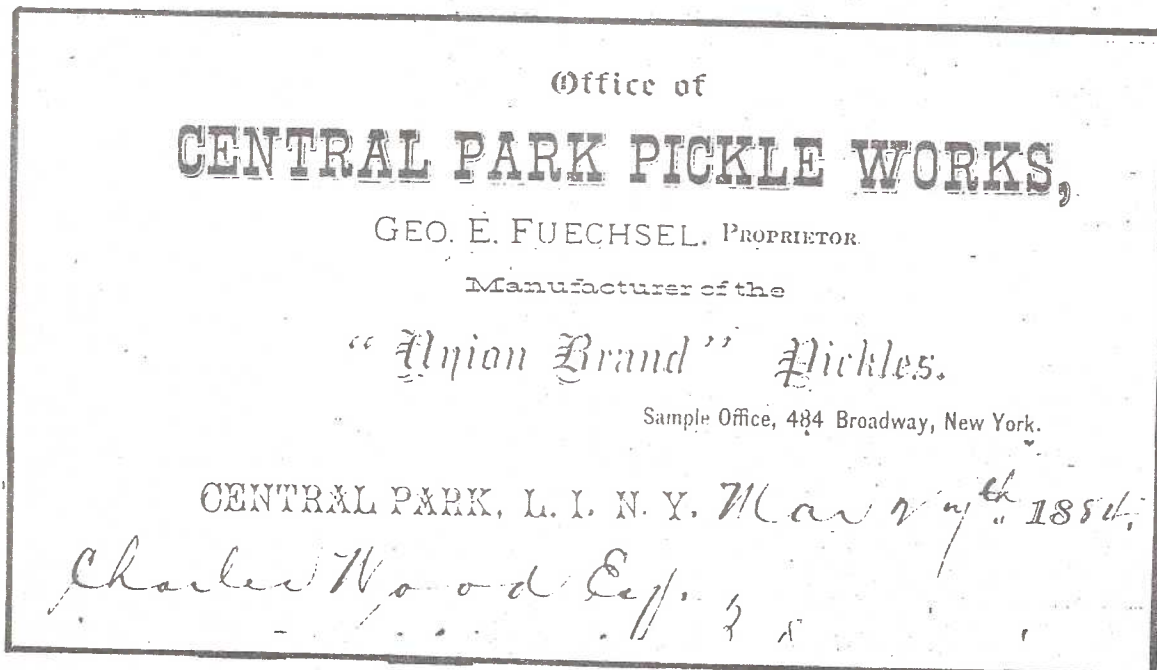 Office of
CENTRAL PARK PICKLE WORKS,
GEO. E. FUECHSEL. PROPRIETOR
Manufacturer of the
"Union Brand" Pickles.
Sample Office, 484 Broadway, New York.
CENTRAL PARK, L. I. N. Y. 188
Charles Wood Esq.